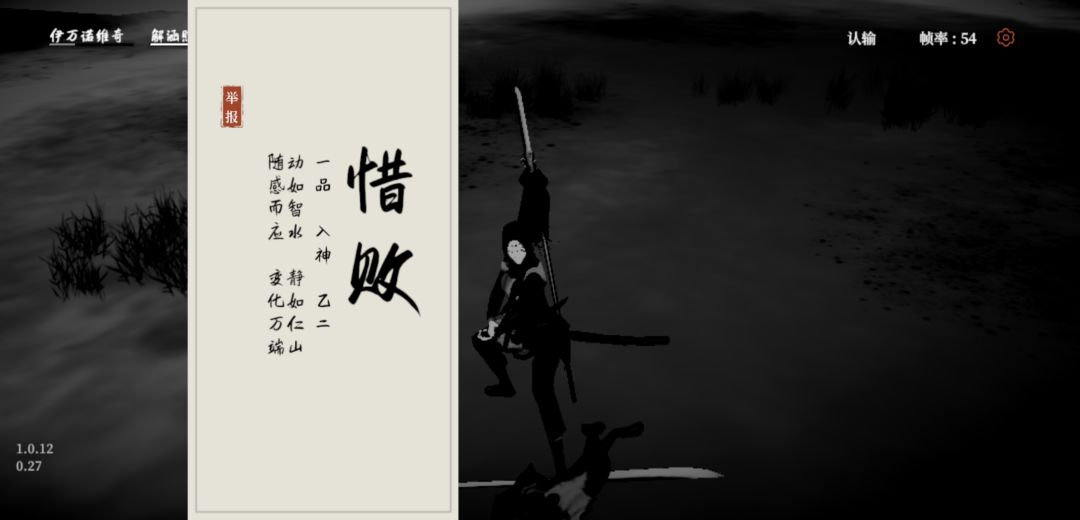 伊万诺维奇
解涵
认输
帧率 : 54
举报
惜败
一品 入神 乙二
动如智水 静如仁山
随感而应 变化万端
1.0.12
0.27